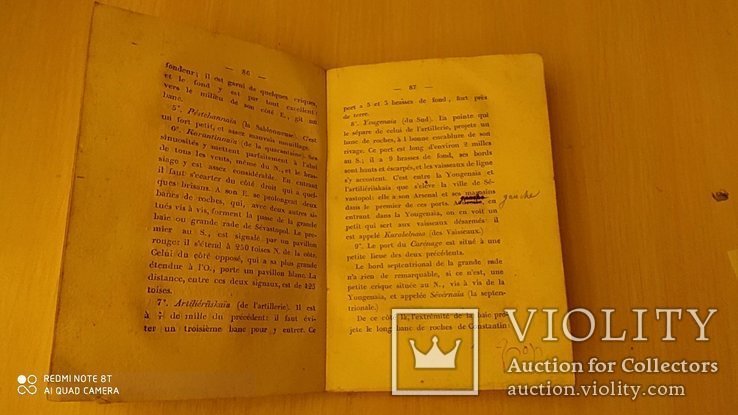 — 86 —
fondeur; il est garni de quelques criques,
et le fond y est par tout excellent
vers le milieu de son côté E., gît un
banc.
5°. Péstchannaïa (la Sablonneuse). C'est
un fort petit, et assez mauvais mouillage.
6°. Karantinnaïa (de la quarantaine). Ses
sinuosités y mettent parfaitement à l'abri
de tous les vents, même du N., et le bras-
siage y est assez considérable. En entrant
il faut s'écarter du côté droit qui a quel-
ques brisans. A son E. se prolongent deux
bancs de roches, qui, avec deux autres si-
tués vis à vis, forment la passe de la grande
baie ou grande rade de Sévastopol. Le pre-
mier au S., est signalé par un pavillon
rouge: il s'étend à 250 toises N. de la côte.
Celui du côté opposé, qui a sa plus grande
étendue à l'O., porte un pavillon blanc. La
distance, entre ces deux signaux, est de 425
toises.
7°. Artillériïskaïa (de l'artillerie). Il est
à ¾ de mille du précédent: il faut évi-
ter un troisième banc pour y entrer. Ce
— 87 —
port a 5 et 3 brasses de fond, fort près
de terre.
8°. Yougenaïa (du Sud). La pointe qui
le sépare de celui de l'artillerie, projete un
banc de roches, à 1 bonne encablure de son
rivage. Ce port est long d'environ 2 milles
au S.: il a 9 brasses de fond, ses bords
sont hauts et escarpés, et les vaisseaux de ligne
s'y accostent. C'est entre la Yougenaïa et
l'artilleriïskaïa que s'élève la ville de Sé-
vastopol: elle a son Arsenal et ses magasins
dans le premier de ces ports.
gauche
entrant dans la Yougenaïa, on en voit un
petit qui sert aux vaisseaux désarmés: il
est appelé Karabelnaïa (des Vaisseaux.)
9°. Le port du Carénage est situé à une
petite lieue des deux précédents.
Le bord septentrional de la grande rade
n'a rien de remarquable, si ce n'est, une
petite crique située au N., vis à vis de la
Yougenaïa, et appelée Sévernaïa (la septen-
trionale.)
De ce côté là, l'extrémité de la baie pro-
jete le long banc de roches de Constantin
REDMI NOTE 8T
AI QUAD CAMERA
VIOLITY
Auction for Collectors
auction.violity.com